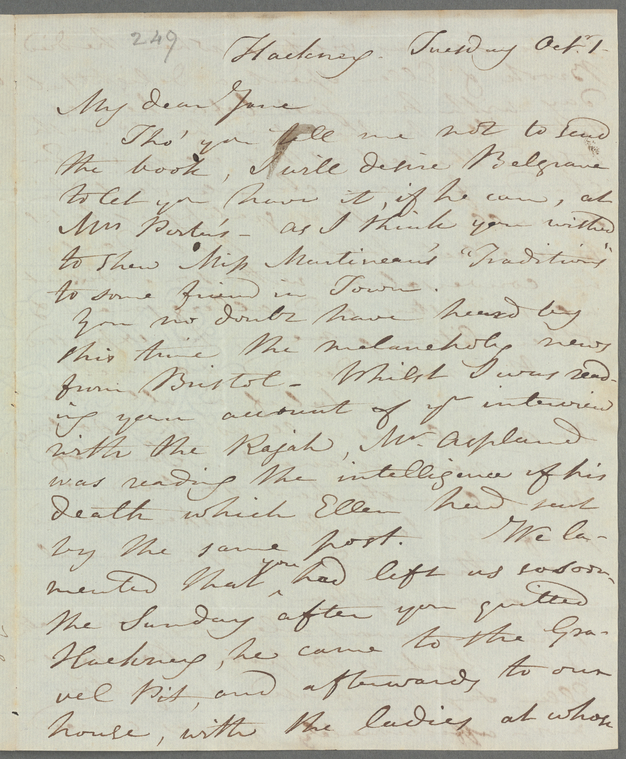 249
Hackney. Tuesday Oct.r 1.
My dear Jane
Tho' you tell me not to send
the book, I will desire Belgrave
to let you have it, if he can, at
Mrs Porter's - as I think you wished
to shew Miss Martineau's "Traditions"
to some friend in Town.
You no doubt have heard by
this time the melancholy news
from Bristol - Whilst I was read-
ing your account of yr interview
with the Rajah, Mr Aspland
was reading the intelligence of his
death which Ellen had sent
by the same post. We la-
mented that you had left us so soon,
the Sunday after you quitted
Hackney, he came to the Gra-
vel Pit, and afterwards to our
house, with the ladies at whose